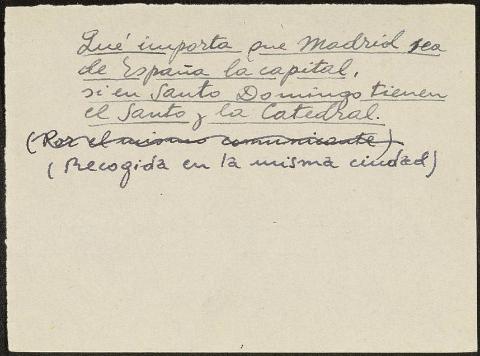 Qué importa que Madrid sea
de España la capital,
si en Santo Domingo tienen
el Santo y la Catedral.
(Por el mismo comunicante)
(Recogida en la misma ciudad)